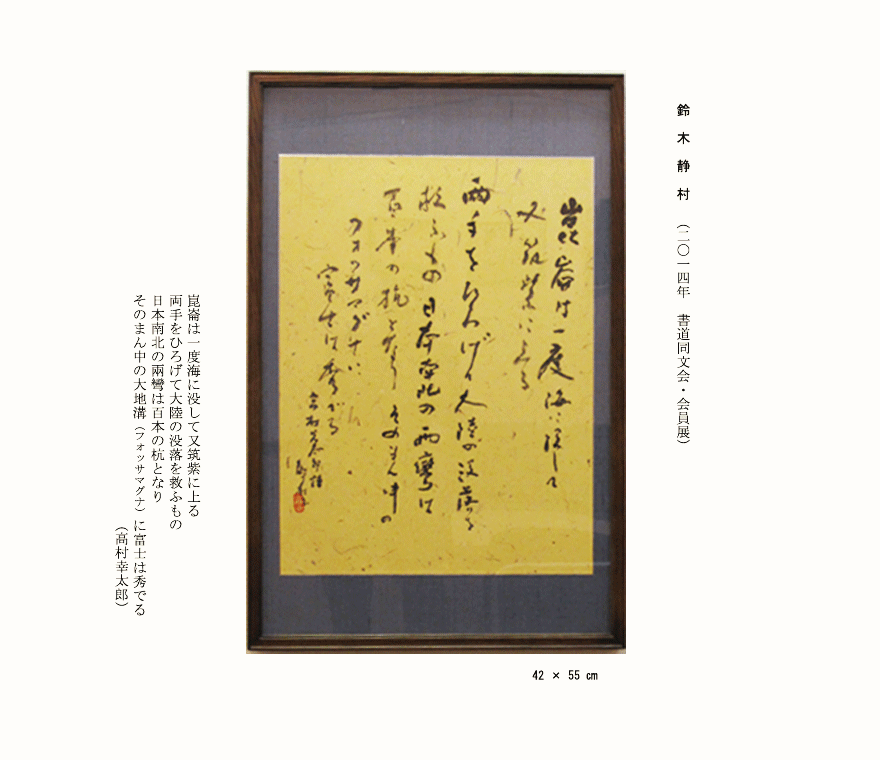 鈴木静村 （二〇一四年 書道同文会・会員展）
崑崙は一度海に没して
又筑紫に上る
両手をひろげて大陸の没落を
救ふもの日本南北の両彎は
百本の杭となりそのまん中の
フォッサマグナに
富士は秀でる
42 × 55 cm
崑崙は一度海に没して又筑紫に上る
両手をひろげて大陸の没落を救ふもの
日本南北の兩彎は百本の杭となり
そのまん中の大地溝（フォッサマグナ）に富士は秀でる
（高村幸太郎）